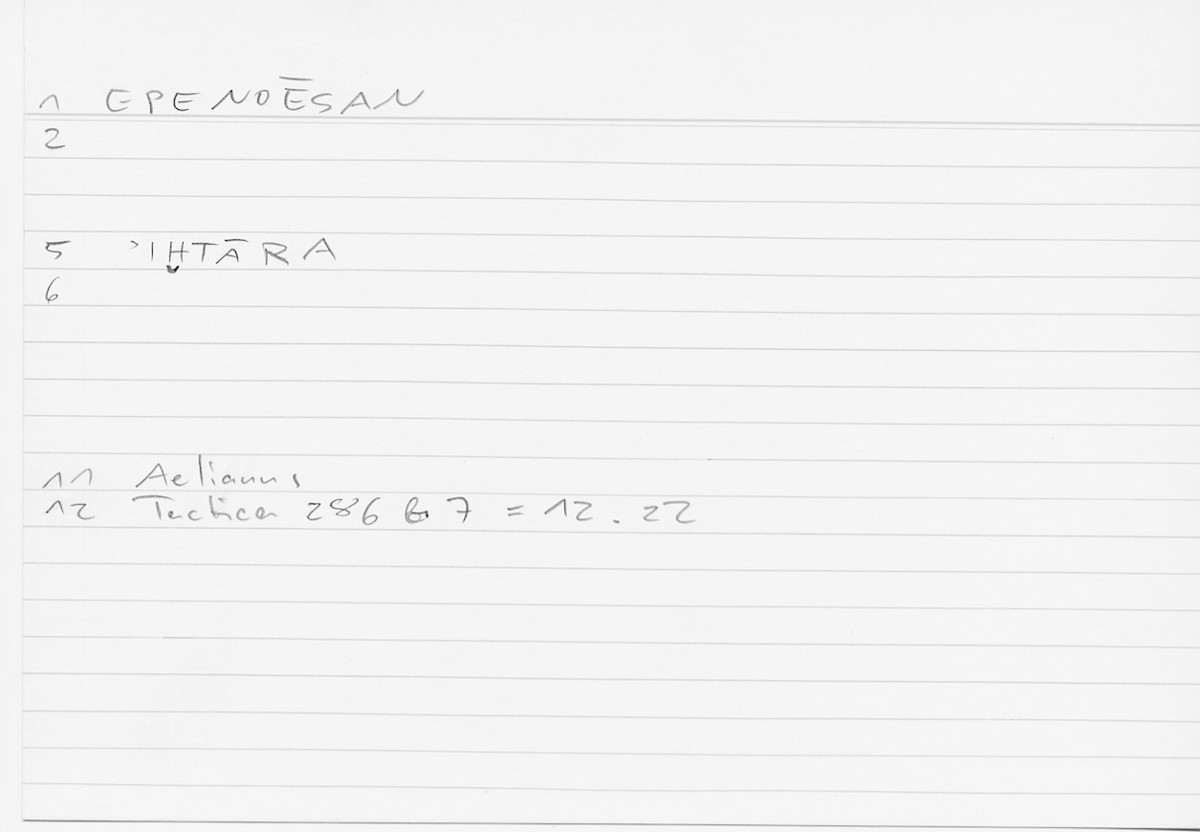 1 EPENOĒSAN
2
5 ʾIḪTĀRA
6
11 Aelianus
12 Tactica 286 b. 7 = 12. 22